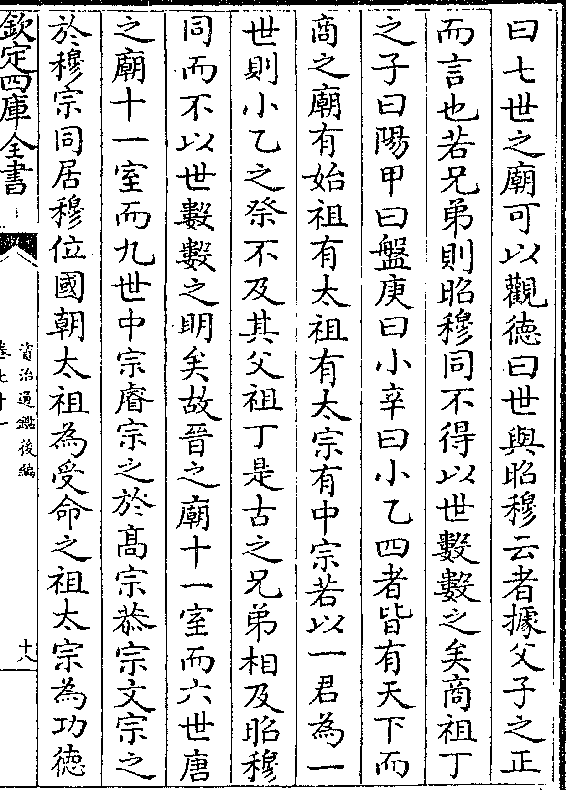 曰七世之廟可以觀德曰世與昭穆云者據父子之正
而言也若兄弟則昭穆同不得以世數數之矣商祖丁
之子曰陽甲曰盤庚曰小辛曰小乙四者皆有天下而
商之廟有始祖有太祖有太宗有中宗若以一君為一
世則小乙之祭不及其父祖丁是古之兄弟相及昭穆
同而不以世數數之明矣故晉之廟十一室而六世唐
之廟十一室而九世中宗睿宗之於髙宗恭宗文宗之
於穆宗同居穆位國朝太祖為受命之祖太宗為功德
欽定四庫全書
資治通鑑後編
十八